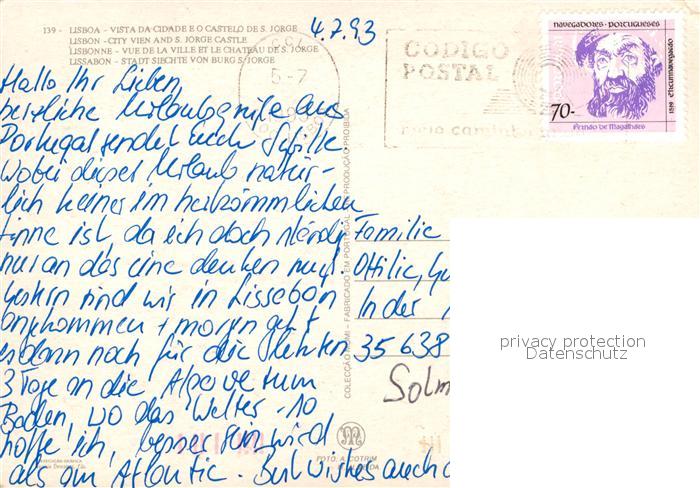 139 - LISBOA - VISTA DA CIDADE E O CASTELO DE S. JORGE
LISBON - CITY VIEN AND S. JORGE CASTLE
LISBONNE - VUE DE LA VILLE ET LE CHATEAU DE S. JORGE
LISSABON - STADT SIECHTE VON BURG S. JORGE
4.7.93
5-7
CODIGO
POSTAL
meio caminho
NAVEGADORES - PORTUGUESES
70-
Fernão de Magalhães
Hallo Ihr Lieben,
herzliche Urlaubsgrüße aus
Portugal sendet euch Sybille
Wobei dieser Urlaub natür-
lich keiner im herkömmlichen
Sinne ist, da ich doch ständig
nur an das eine denken muß.
Gestern sind wir in Lissabon
angekommen + morgen geht
es dann noch für die letzten
3 Tage an die Algarve zum
Baden, wo das Wetter, so
hoffe ich, besser sein wird
als am Atlantic. Best wishes auch
Familie
Ottilie,
In der
35638
Solm
COLECÇÃO - FABRICADO EM PORTUGAL - REPRODUÇÃO PROIBIDA
FOTO: A. COTRIM
privacy protection
Datenschutz